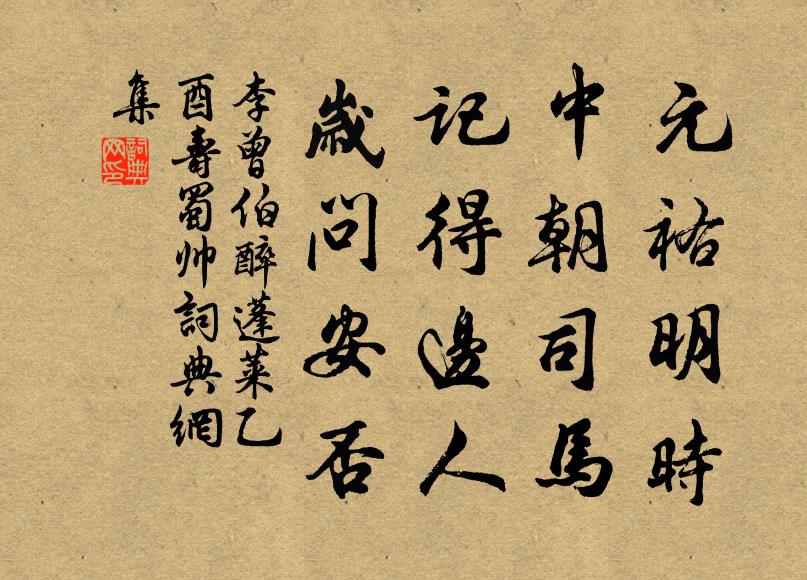 元祐明時
中朝司馬
記得邊人
歲問安否
李曾伯醉蓬萊乙
酉壽蜀帅詞典網
集
詞典網印